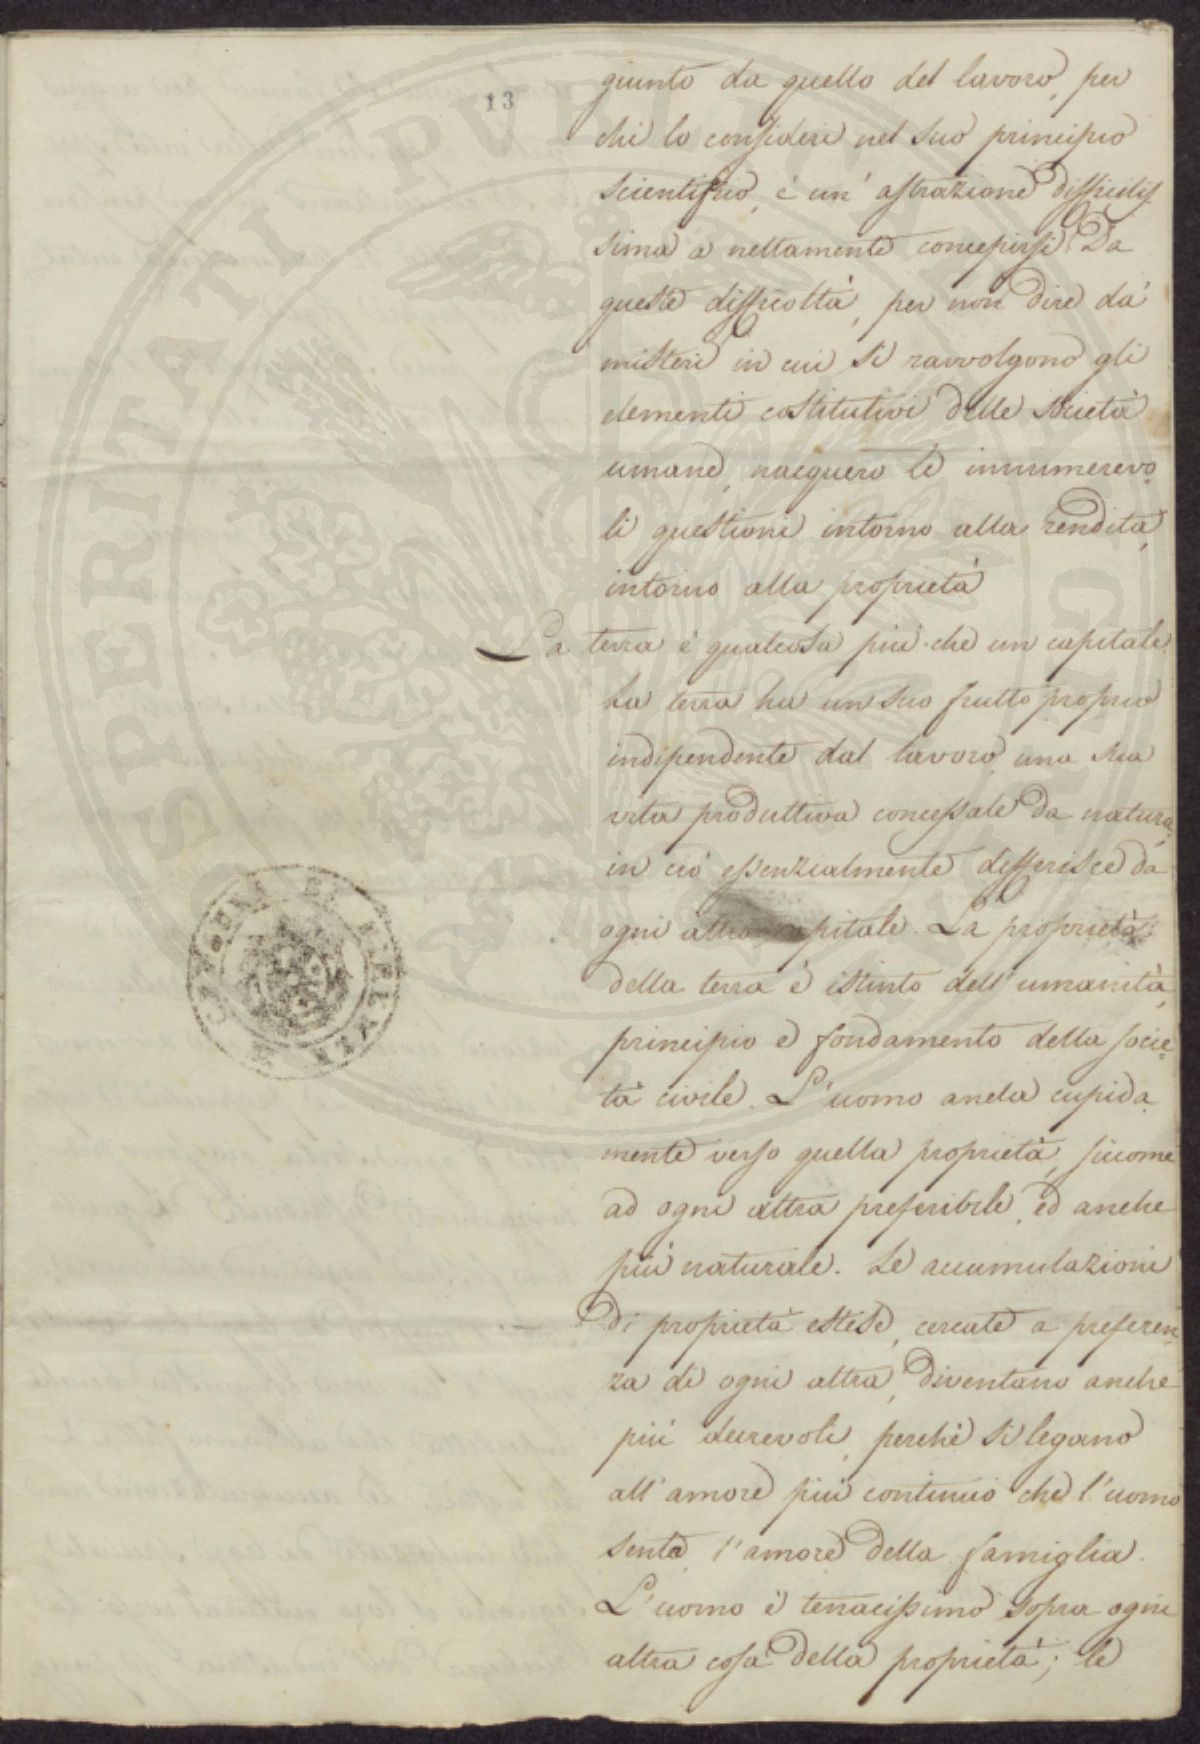 13
giunto da quello del lavoro, per
chi lo consideri nel suo principio
scientifico, è un' astrazione difficilis
sima a nettamente concepirsi. Da
queste difficoltà, per non dire da'
misteri in cui si ravvolgono gli
elementi costitutivi delle società
umane, nacquero le innumerevo-
li questioni intorno alla rendita,
intorno alla proprietà
La terra è qualcosa più che un capitale.
La terra ha un suo frutto proprio
indipendente dal lavoro, una sua
vita produttiva concessale da natura,
in ciò essenzialmente differisce da
ogni altro capitale. La proprietà
della terra è istinto dell' umanità,
principio e fondamento della socie-
tà civile. L'uomo anela cupida-
mente verso quella proprietà, siccome
ad ogni altra preferibile, ed anche
più naturale. Le accumulazioni
di proprietà estese, cercate a preferen-
za di ogni altra, diventano anche
più durevoli, perchè si legano
all' amore più continuo che l'uomo
senta, l'amore della famiglia.
L'uomo è tenacissimo sopra ogni
altra cosa della proprietà; le
PROSPERITATI PVBLICAE AVGENDAE